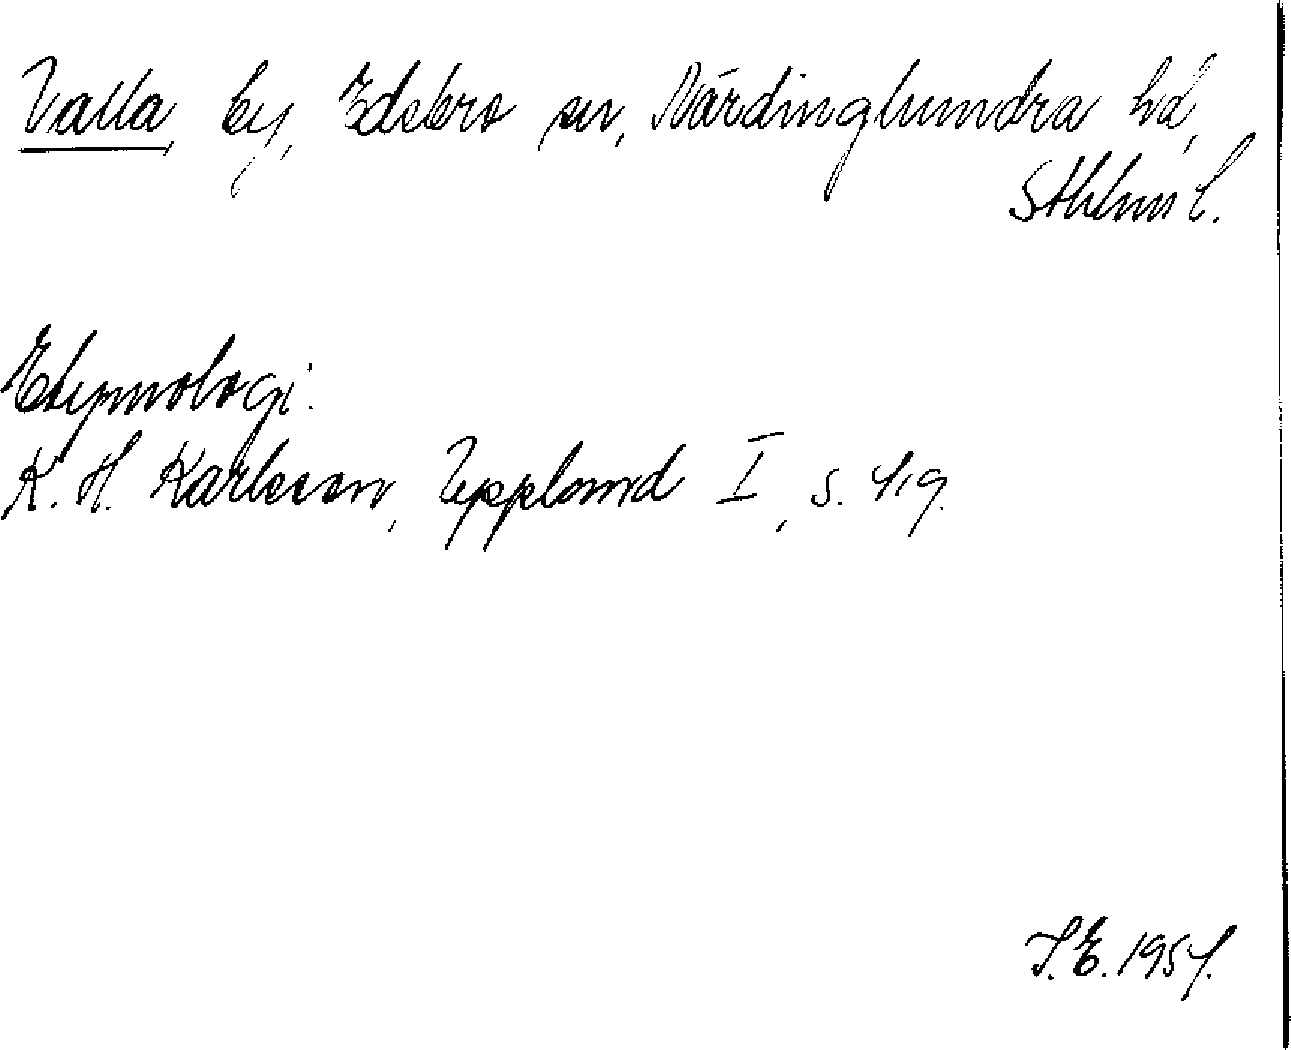 Valla, by, Edebro sn, Närdinghundra hd,
Sthlms l.
Etymologi:
K. H. Karlsson, Uppland I, s. 419.
S.E. 1957.